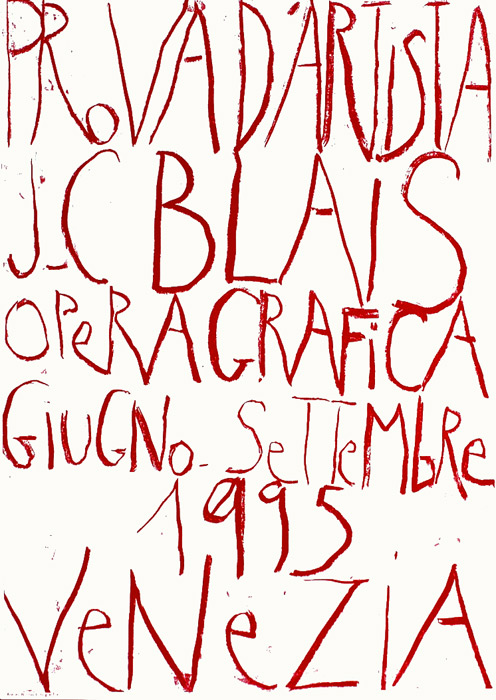 PRoVA D'ARTiSTA
J-C BLAiS
OPeRA GRAFiCA
GiUGNo- SeTTeMbRe
1995
VeNeZiA